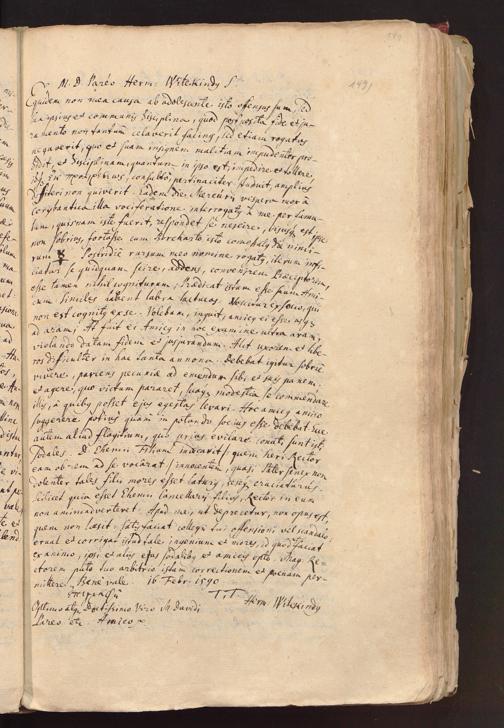 1491
M. D Paréo Herm: Witekindy S
Equidem non mea causa ab adolescente isto offensus sum, sed
ipsius et communis disciplina, quod postposita fide et ju-
ramento non tantum celaverit facing, sed etiam rogatus
negaverit, quo et suam insignem malitiam impudenter pro-
didit, et disciplinam, quantum in ipso est, impedire et tollere,
pertinaciter studuit, amplius
non quiverit. Eadem die Mercurij vespera mox à
corybantica illa vociferatione interrogaty à me per famu-
lum, quisnam iste fuerit, respondet se nescire,
non sobrios, fortasse cum Borcharto isto
rum Postridie rursum meo nomine rogaty, iterum
ciatus se quidquam scire, addens, convenirem Praeceptorem,
esse tamen nihil cogniturum. Praedicat istum esse suum Ami-
cum Similes habent labra lactucas. Noscitur ex socio, qui
non est cognity ex se. Volebam, inquit, amicy ei esse usq
ad aram; At fuit ei Amicy in hoc examine ultra aram,
violando datam fidem et jusjurandum. Alit uxorem et libe-
ros difficulter in hac tanta annona. Debebat igitur sobriè
vivere, parcens pecuniae ad emendum sibi et suis panem,
et agere, quo victum pararet, suaq modestia se commendare
illis, à quiby posset ejus egestas levari. Hoc amicy amico
suggerere potius quam in potando socius esse debebat
autem aliud flagitium, quod prius evitare conati sunt isti
sodales. D. Ehemij Filium quem heri Rector
eam ob rem ad se vocarat innocentem, quasi Pater senex non
dolenter tales filij mores esset laturus,
Scilicet quia esset Ehemij Cancellarij filius, Rector in eum
non animadverteret. Apud me, ut deprecetur, non opus est,
quem non laesit. Satisfaciat collegij sui offensioni vel scandalo,
ornet et corrigat ingenium et mores, id quod faciat
ex animo, ipsi et alijs ejus sodalibus et amicis esto. Mag. Re-
ctorem puto suo arbitrio istam correctionem et poenam per-
mittere. Bene vale. 16 Febr. 1590
T. T.
Herm. Witekindy
Optimo atq Doctissimo Viro M Davidi
Pareo etc. Amico